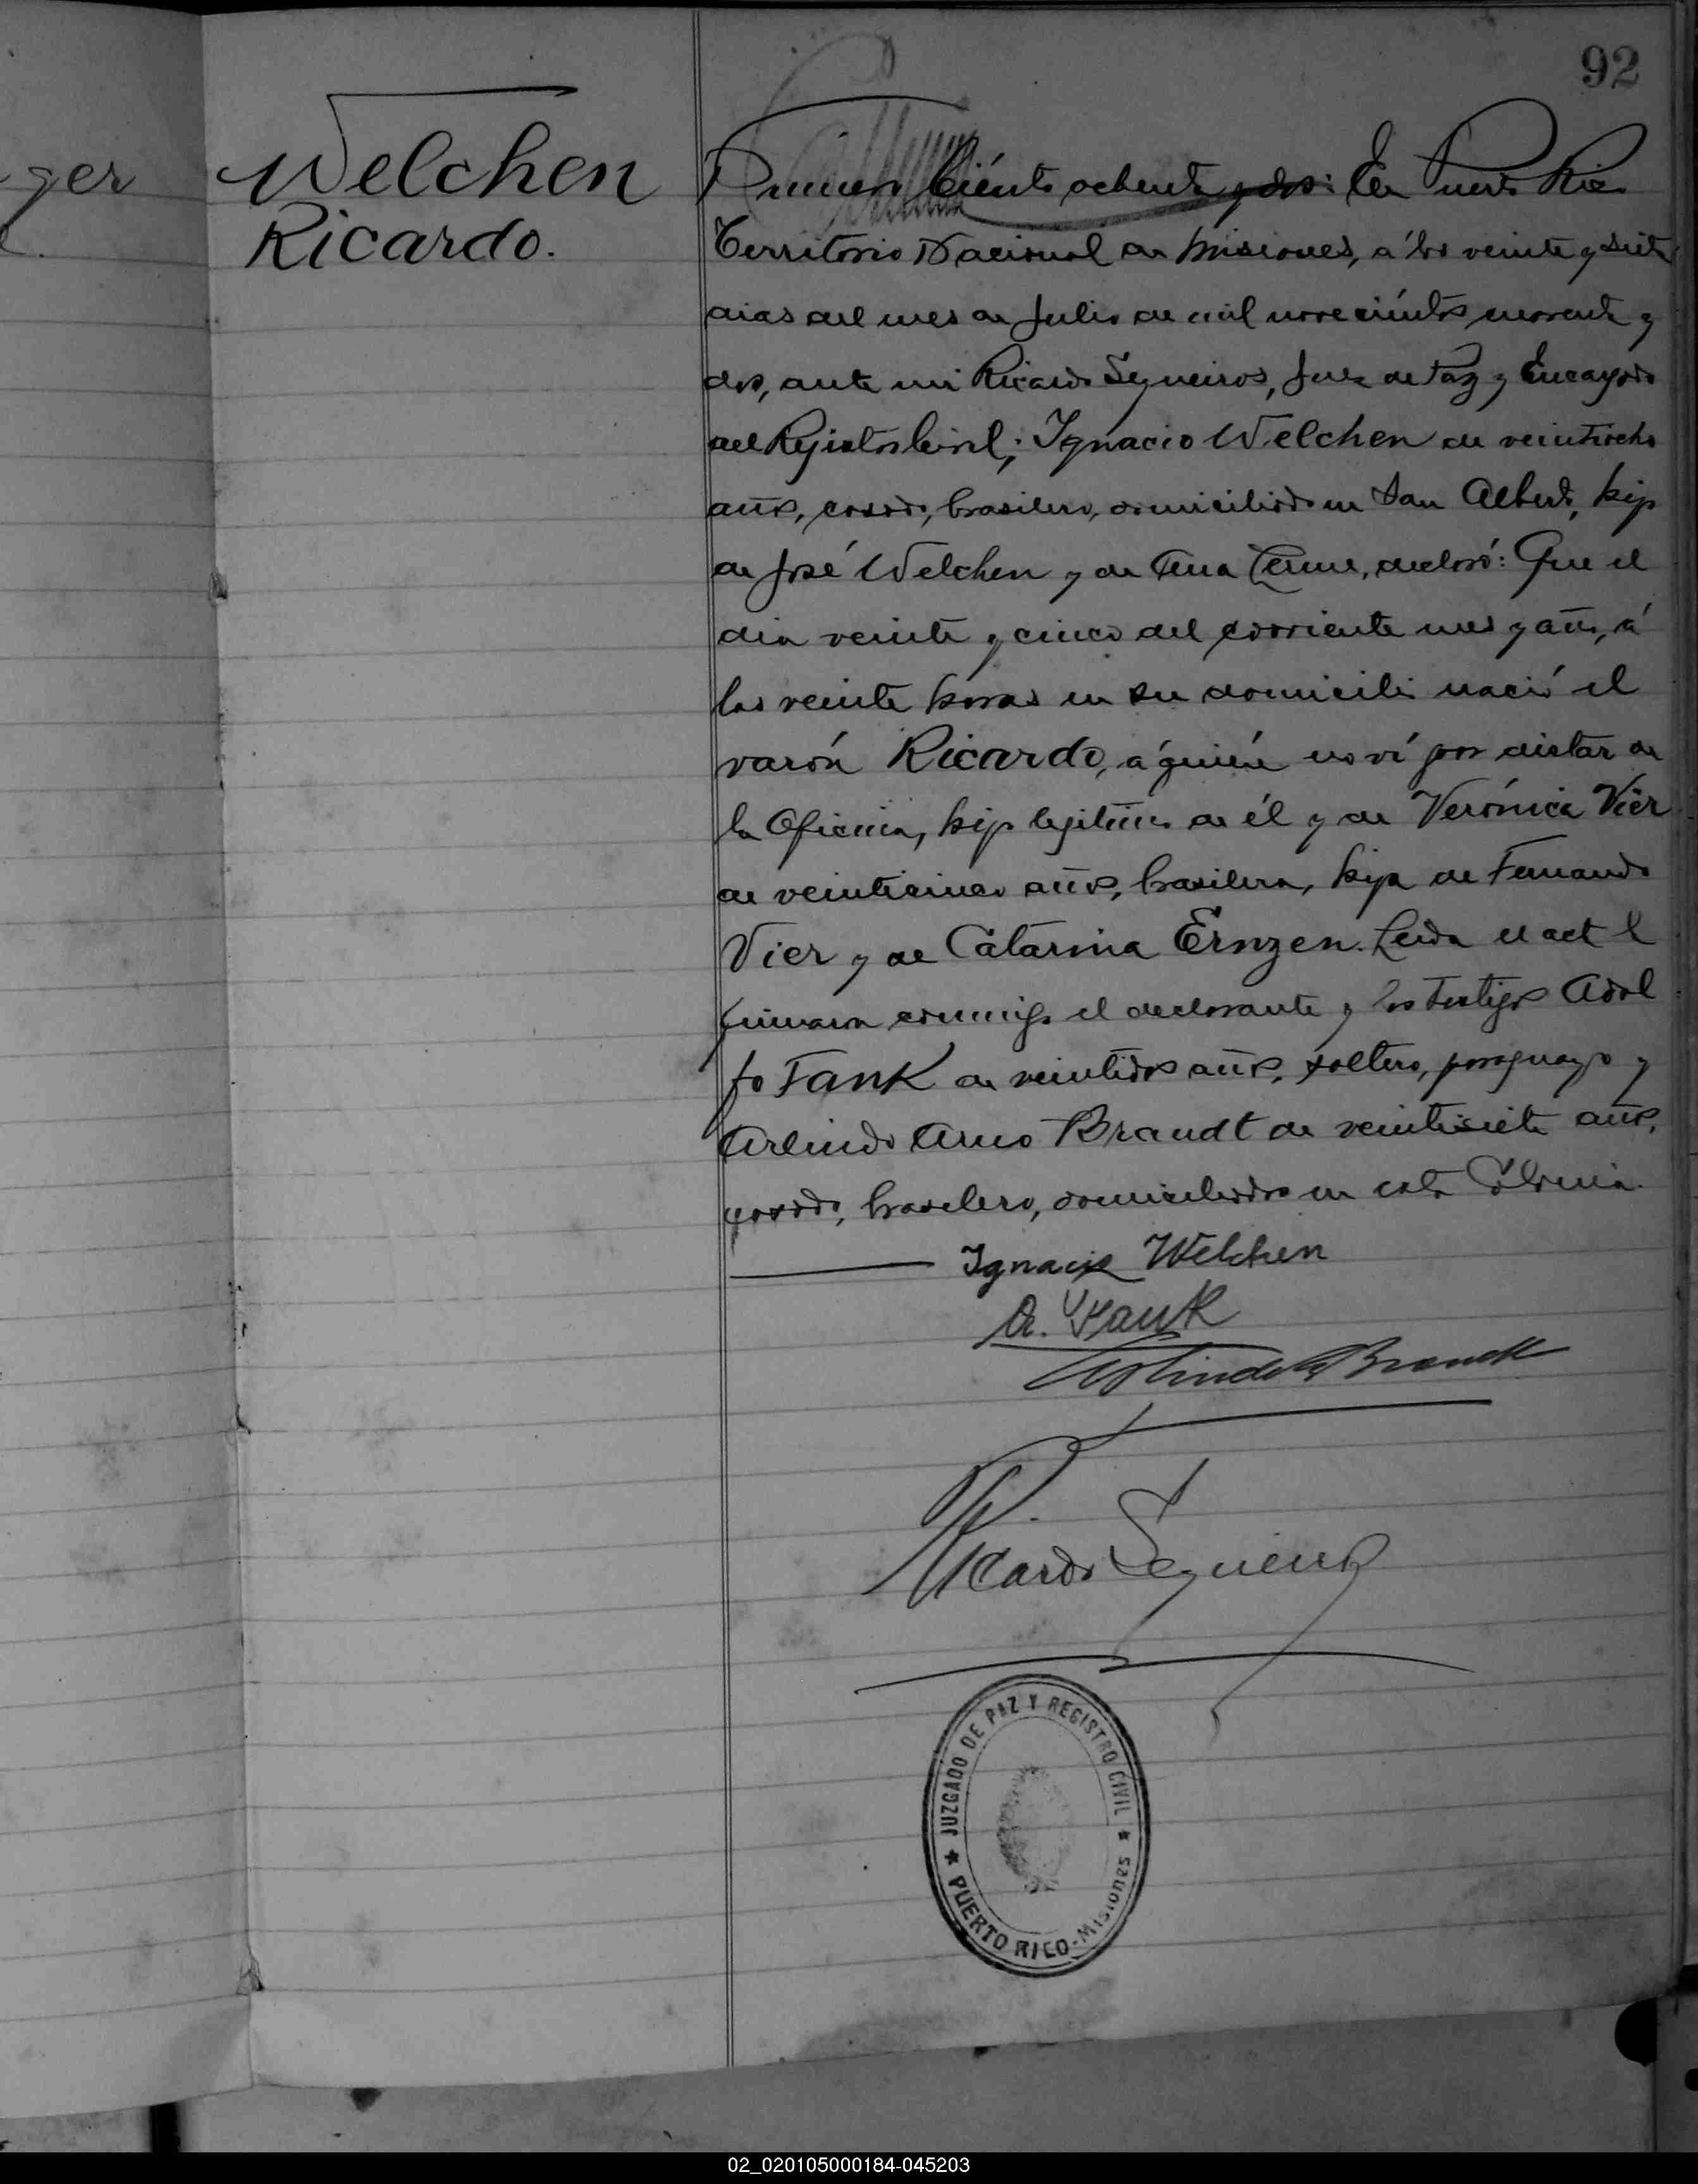 92
ger
Welchen
Ricardo.
Número Ciento ochenta y dos: En Puerto Rico
Territorio Nacional de Misiones, á los veinte y siete
dias del mes de Julio de mil novecientos y
dos, ante mi Ricardo Sequeiros, Juez de Paz y Encargado
del Registro Civil; Ignacio Welchen de veintiocho
años, casado, brasilero, domiciliado en San Alberto, hijo
de José Welchen y de Ana declaró: Que el
dia veinte y cinco del corriente mes y año, á
las veinte horas en su domicilio nació el
varón Ricardo, á quién no ví por distar de
la Oficina, hijo legitimo de él y de Verónica Vier
de veinticinco años, brasilera, hija de Fernando
Vier y de Catarina Ernzen. Leida el acta la
firmaron conmigo el declarante y los testigos Adol
fo Fank de veintidos años, soltero, paraguayo y
Arlindo Arno Brandt de veintisiete años,
casado, brasilero, domiciliados en esta Colonia.
Ignacio Welchen
A. Fank
Arlindo A Brandt
Ricardo Sequeiros
JUZGADO DE PAZ Y REGISTRO CIVIL
★ PUERTO RICO - Misiones ★
02_020105000184-045203